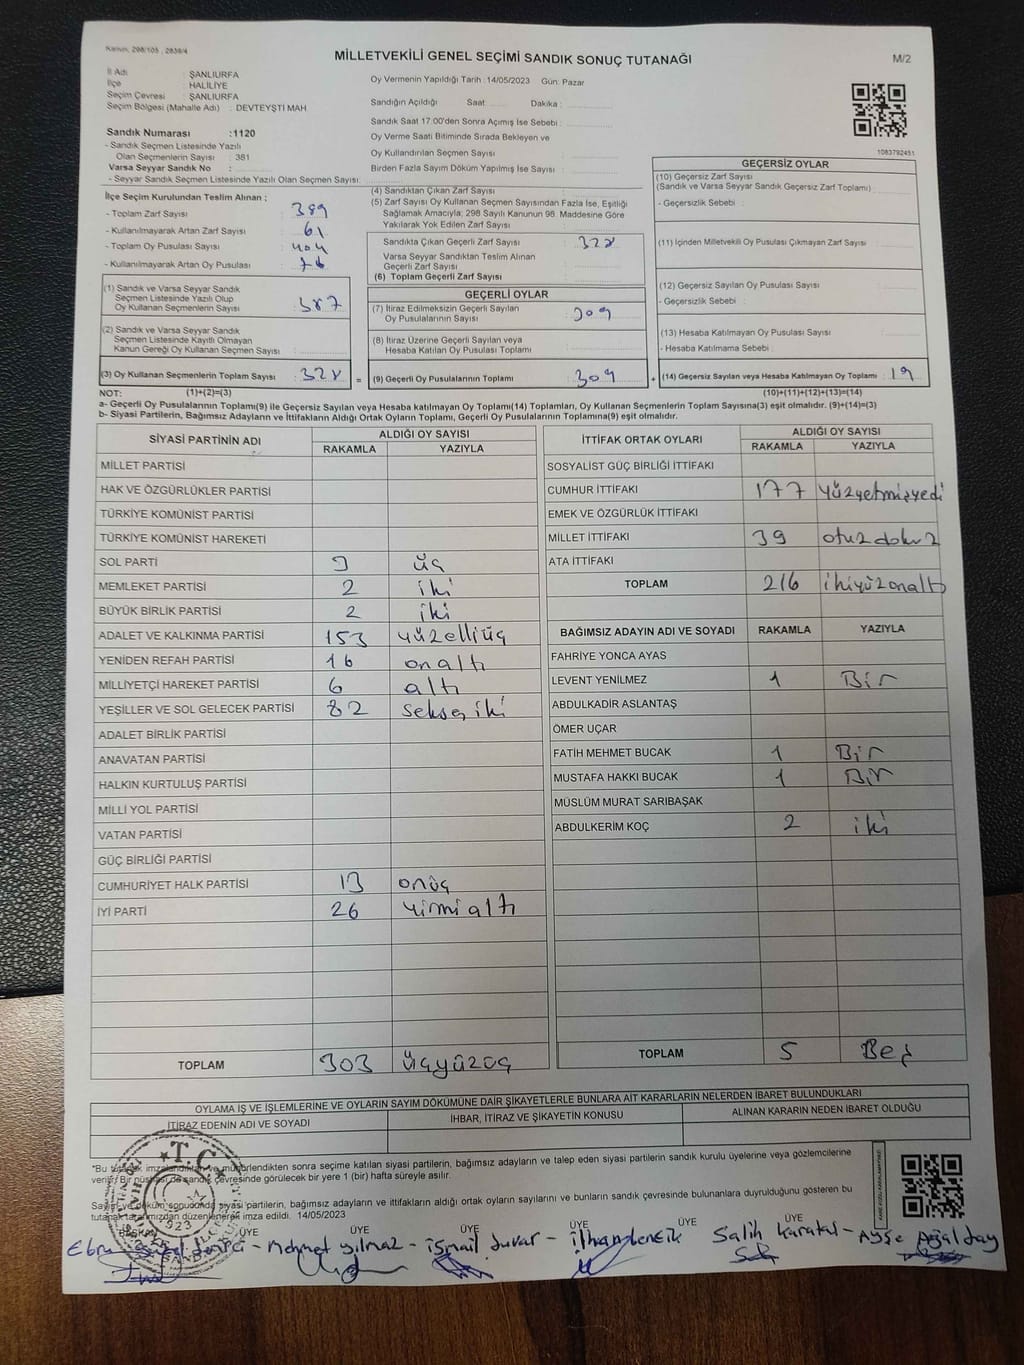 Kanun, 298/105 , 2839/4
MİLLETVEKİLİ GENEL SEÇİMİ SANDIK SONUÇ TUTANAĞI
M/2
İl Adı : ŞANLIURFA
İlçe : HALİLİYE
Seçim Çevresi : ŞANLIURFA
Seçim Bölgesi (Mahalle Adı) : DEVTEYŞTİ MAH
Sandık Numarası :1120
- Sandık Seçmen Listesinde Yazılı
Olan Seçmenlerin Sayısı : 381
Varsa Seyyar Sandık No :
- Seyyar Sandık Seçmen Listesinde Yazılı Olan Seçmen Sayısı:
Oy Vermenin Yapıldığı Tarih : 14/05/2023 Gün: Pazar
Sandığın Açıldığı Saat Dakika :
Sandık Saat 17:00'den Sonra Açımış İse Sebebi :
Oy Verme Saati Bitiminde Sırada Bekleyen ve
Oy Kullandırılan Seçmen Sayısı :
Birden Fazla Sayım Döküm Yapılmış İse Sayısı :
1083792451
İlçe Seçim Kurulundan Teslim Alınan ;
- Toplam Zarf Sayısı : 389
- Kullanılmayarak Artan Zarf Sayısı : 61
- Toplam Oy Pusulası Sayısı : 404
- Kullanılmayarak Artan Oy Pusulası : 76
(1) Sandık ve Varsa Seyyar Sandık
Seçmen Listesinde Yazılı Olup
Oy Kullanan Seçmenlerin Sayısı :
(2) Sandık ve Varsa Seyyar Sandık
Seçmen Listesinde Kayıtlı Olmayan
Kanun Gereği Oy Kullanan Seçmen Sayısı :
(3) Oy Kullanan Seçmenlerin Toplam Sayısı : 328
(4) Sandıktan Çıkan Zarf Sayısı :
(5) Zarf Sayısı Oy Kullanan Seçmen Sayısından Fazla İse, Eşitliği
Sağlamak Amacıyla; 298 Sayılı Kanunun 98. Maddesine Göre
Yakılarak Yok Edilen Zarf Sayısı :
Sandıkta Çıkan Geçerli Zarf Sayısı : 328
Varsa Seyyar Sandıktan Teslim Alınan
Geçerli Zarf Sayısı :
(6) Toplam Geçerli Zarf Sayısı :
GEÇERLİ OYLAR
(7) İtiraz Edilmeksizin Geçerli Sayılan
Oy Pusulalarının Sayısı : 309
(8) İtiraz Üzerine Geçerli Sayılan veya
Hesaba Katılan Oy Pusulası Toplamı :
= (9) Geçerli Oy Pusulalarının Toplamı : 309
GEÇERSİZ OYLAR
(10) Geçersiz Zarf Sayısı
(Sandık ve Varsa Seyyar Sandık Geçersiz Zarf Toplamı) :
- Geçersizlik Sebebi :
(11) İçinden Milletvekili Oy Pusulası Çıkmayan Zarf Sayısı :
(12) Geçersiz Sayılan Oy Pusulası Sayısı :
- Geçersizlik Sebebi :
(13) Hesaba Katılmayan Oy Pusulası Sayısı :
- Hesaba Katılmama Sebebi :
+ (14) Geçersiz Sayılan veya Hesaba Katılmayan Oy Toplamı : 19
NOT: (1)+(2)=(3) (10)+(11)+(12)+(13)=(14)
a- Geçerli Oy Pusulalarının Toplamı(9) ile Geçersiz Sayılan veya Hesaba katılmayan Oy Toplamı(14) Toplamları, Oy Kullanan Seçmenlerin Toplam Sayısına(3) eşit olmalıdır. (9)+(14)=(3)
b- Siyasi Partilerin, Bağımsız Adayların ve İttifakların Aldığı Ortak Oyların Toplamı, Geçerli Oy Pusulalarının Toplamına(9) eşit olmalıdır.
SİYASİ PARTİNİN ADI ALDIĞI OY SAYISI
RAKAMLA YAZIYLA
MİLLET PARTİSİ
HAK VE ÖZGÜRLÜKLER PARTİSİ
TÜRKİYE KOMÜNİST PARTİSİ
TÜRKİYE KOMÜNİST HAREKETİ
SOL PARTİ 3 üç
MEMLEKET PARTİSİ 2 iki
BÜYÜK BİRLİK PARTİSİ 2 iki
ADALET VE KALKINMA PARTİSİ 153 yüzelliüç
YENİDEN REFAH PARTİSİ 16 onaltı
MİLLİYETÇİ HAREKET PARTİSİ 6 altı
YEŞİLLER VE SOL GELECEK PARTİSİ 82 sekseniki
ADALET BİRLİK PARTİSİ
ANAVATAN PARTİSİ
HALKIN KURTULUŞ PARTİSİ
MİLLİ YOL PARTİSİ
VATAN PARTİSİ
GÜÇ BİRLİĞİ PARTİSİ
CUMHURİYET HALK PARTİSİ 13 onüç
İYİ PARTİ 26 yirmialtı
TOPLAM 303 üçyüzüç
İTTİFAK ORTAK OYLARI ALDIĞI OY SAYISI
RAKAMLA YAZIYLA
SOSYALİST GÜÇ BİRLİĞİ İTTİFAKI
CUMHUR İTTİFAKI 177 yüzyetmişyedi
EMEK VE ÖZGÜRLÜK İTTİFAKI
MİLLET İTTİFAKI 39 otuzdokuz
ATA İTTİFAKI
TOPLAM 216 ikiyüzonaltı
BAĞIMSIZ ADAYIN ADI VE SOYADI RAKAMLA YAZIYLA
FAHRİYE YONCA AYAS
LEVENT YENİLMEZ 1 Bir
ABDULKADİR ASLANTAŞ
ÖMER UÇAR
FATİH MEHMET BUCAK 1 Bir
MUSTAFA HAKKI BUCAK 1 Bir
MÜSLÜM MURAT SARIBAŞAK
ABDULKERİM KOÇ 2 iki
TOPLAM 5 Beş
OYLAMA İŞ VE İŞLEMLERİNE VE OYLARIN SAYIM DÖKÜMÜNE DAİR ŞİKAYETLERLE BUNLARA AİT KARARLARIN NELERDEN İBARET BULUNDUKLARI
İTİRAZ EDENİN ADI VE SOYADI İHBAR, İTİRAZ VE ŞİKAYETİN KONUSU ALINAN KARARIN NEDEN İBARET OLDUĞU
*Bu tutanak imzalandıktan ve mühürlendikten sonra seçime katılan siyasi partilerin, bağımsız adayların ve talep eden siyasi partilerin sandık kurulu üyelerine veya gözlemcilerine
verilir. Bir nüshası da sandık çevresinde görülecek bir yere 1 (bir) hafta süreyle asılır.
Sayım ve döküm sonucunda siyasi partilerin, bağımsız adayların ve ittifakların aldığı ortak oyların sayılarını ve bunların sandık çevresinde bulunanlara duyrulduğunu gösteren bu
tutanak tarafımızdan düzenlenerek imza edildi. 14/05/2023
T.C
923
BAŞKAN ÜYE ÜYE ÜYE ÜYE ÜYE
Ebru - Mehmet yılmaz - ismail duvar - ilhan - Salih Karatal - Ayşe